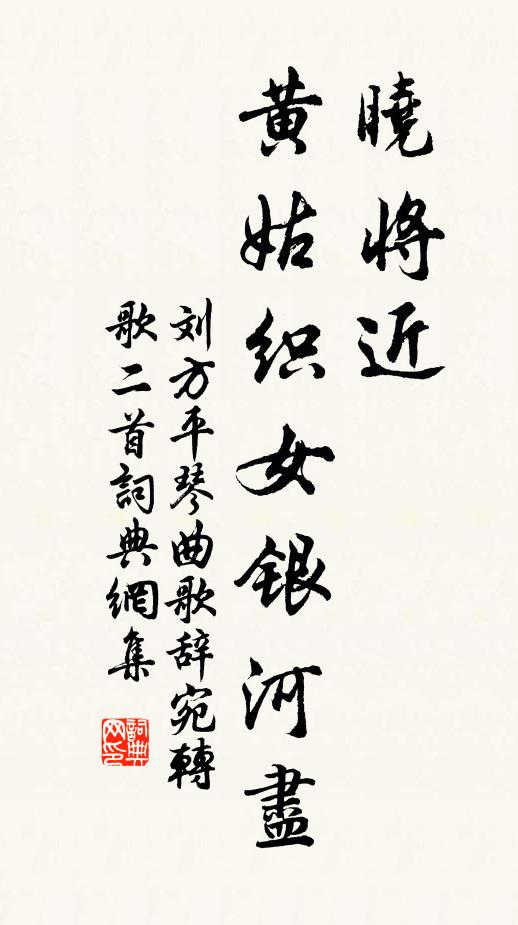 曉將近
黄姑织女银河盡
刘方平琴曲歌辞宛轉
歌二首詞典網集
詞典网印